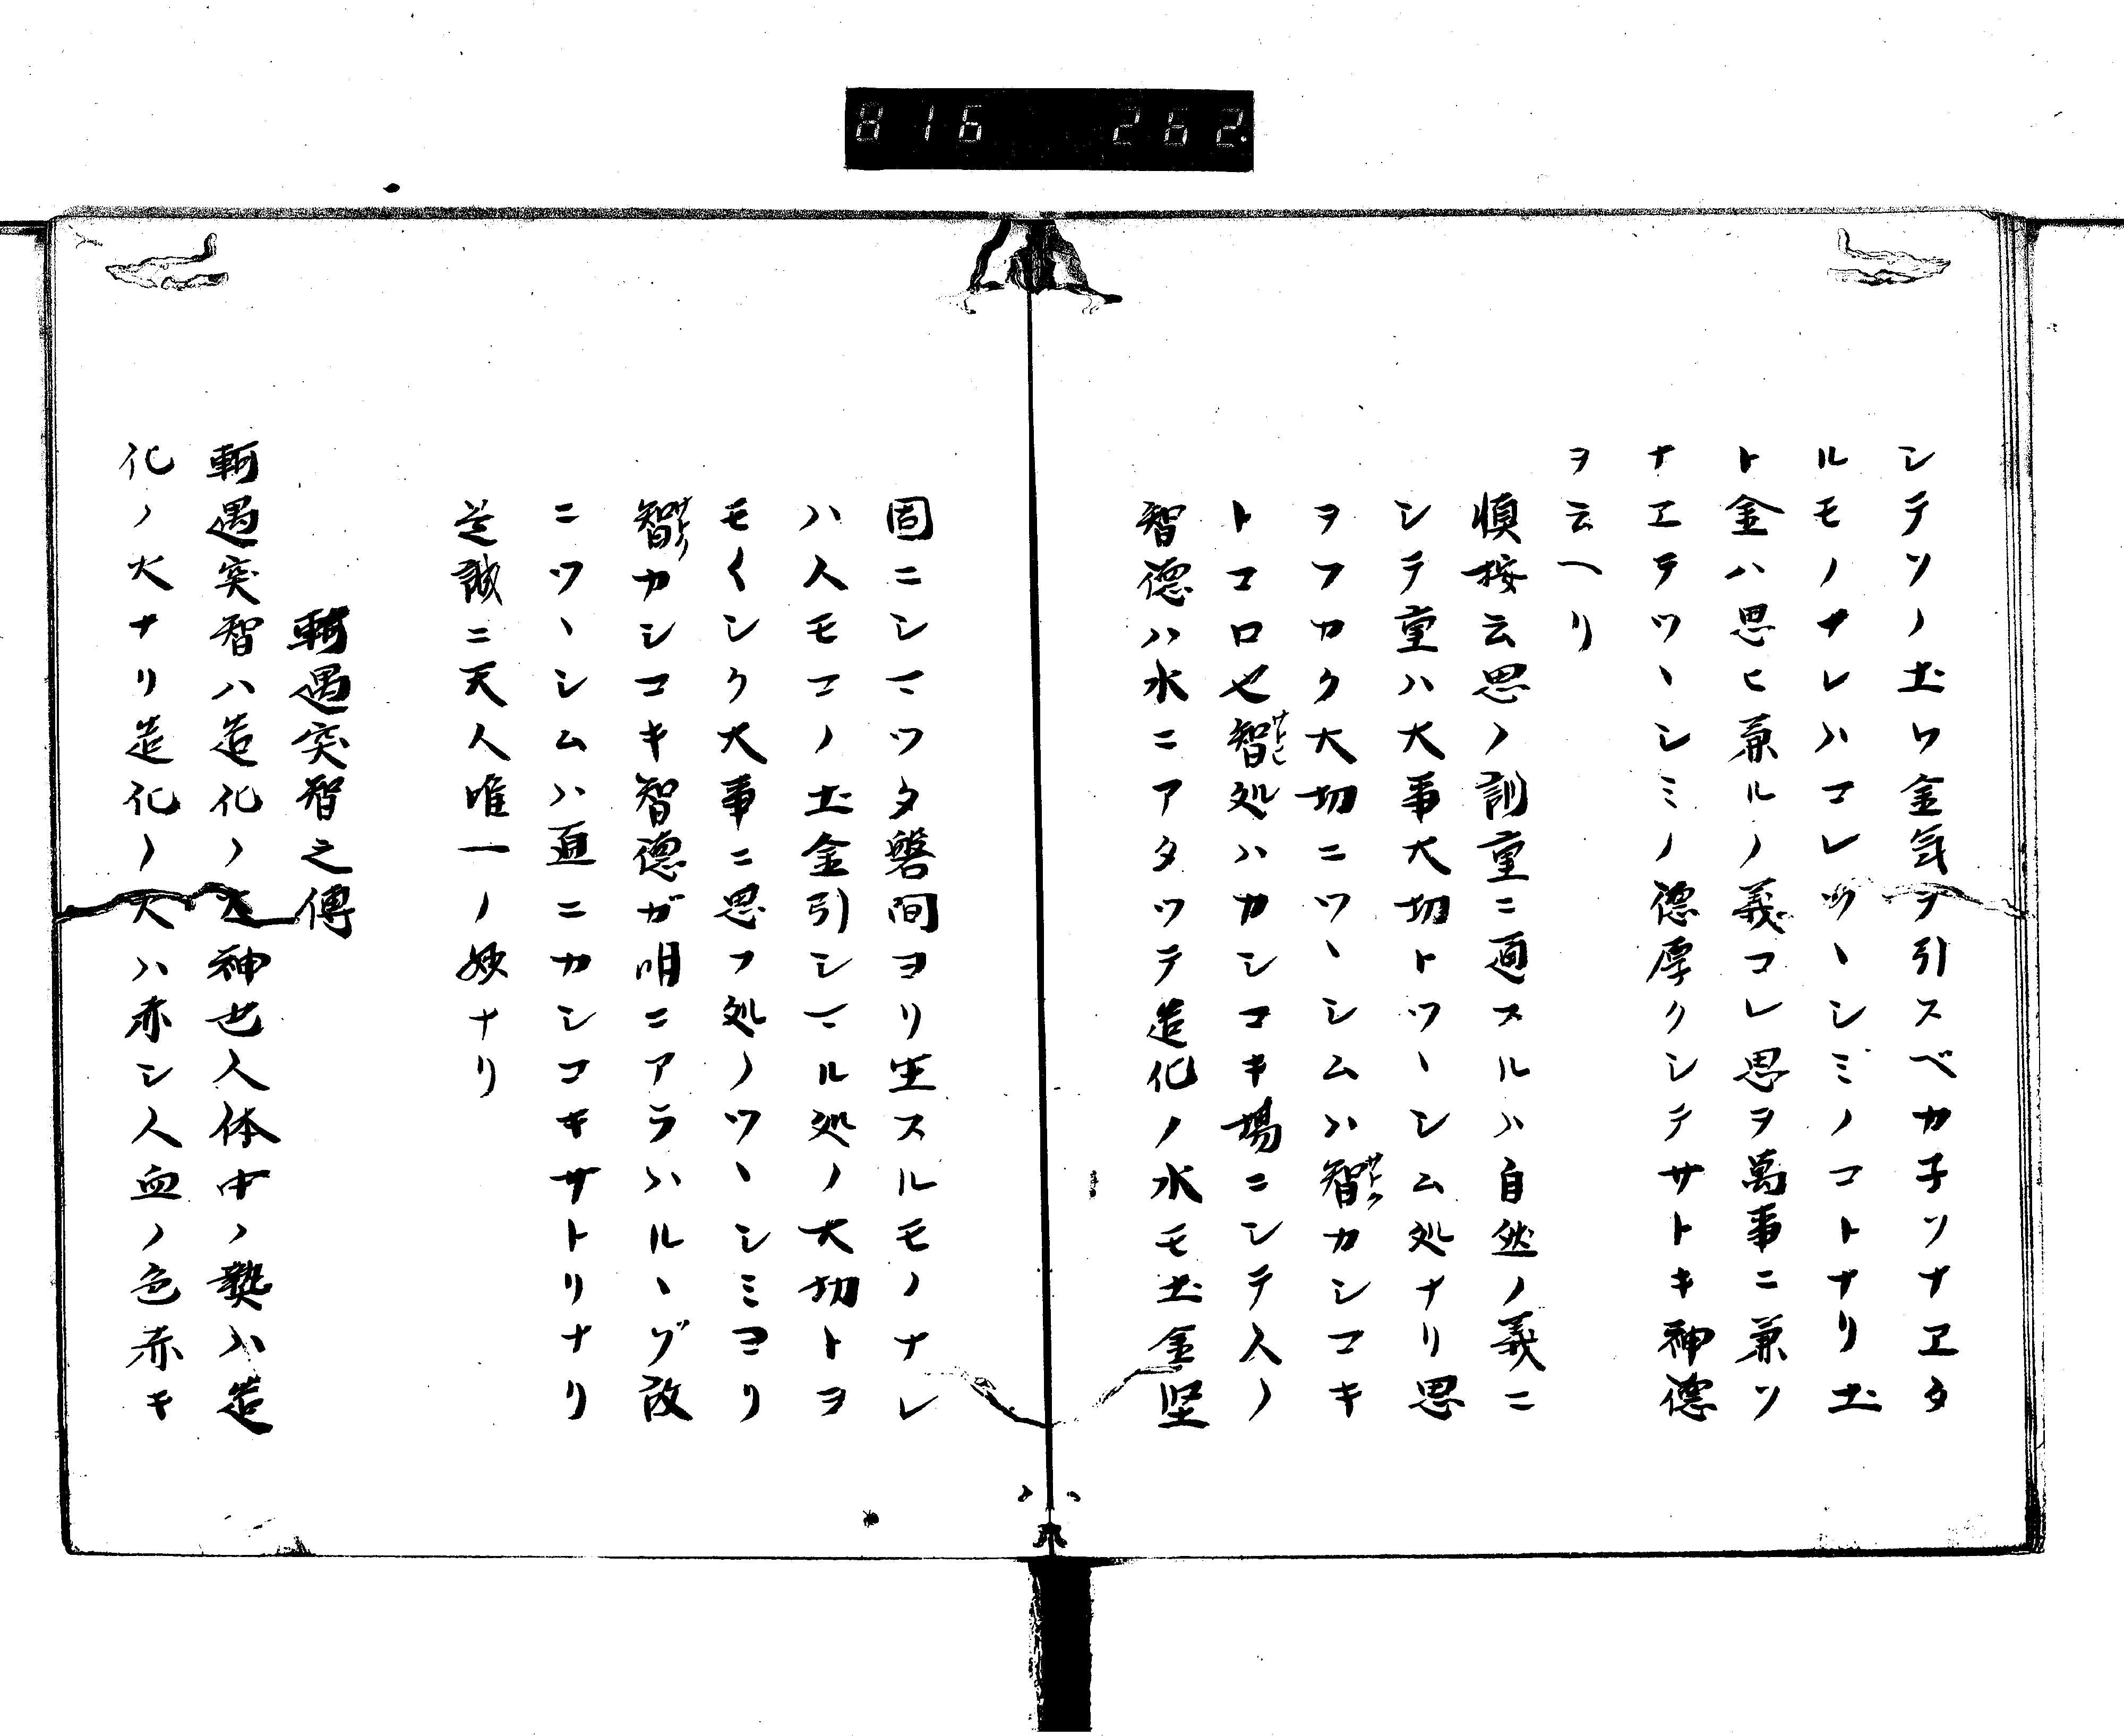 816 262
シテソノ土ワ金気ヲ引スベカ子ソナヱタ
ルモノナレハコレツヽシミノコトナリ土
ト金ハ思ヒ兼ルノ義コレ思ヲ萬事ニ兼ソ
ナヱテツヽシミノ徳厚クシテサトキ神徳
ヲ云ヘリ
慎按云思ノ訓重ニ通スルハ自然ノ義ニ
シテ重ハ大事大切トツヽシム処ナリ思
ヲフカク大切ニツヽシムハ智サトクカシコキ
トコロ也智サトヒ処ハカシコキ場ニシテ人ノ
智徳ハ水ニアタツテ造化ノ水モ土金堅
固ニシマツタ磐間ヨリ生スルモノナレ
ハ人モコノ土金引シマル処ノ大切トヲ
モイシク大事ニ思フ処ノツヽシミヨリ
智サトリカシコキ智徳ガ明ニアラハルヽゾ故
ニツヽシムハ直ニカシコキサトリナリ
是誠ニ天人唯一ノ妙ナリ
軻遇突智之傳
軻遇突智ハ造化ノ火神也人体中ノ熱ハ造
化ノ火ナリ造化ノ火ハ赤シ人血ノ色赤キ